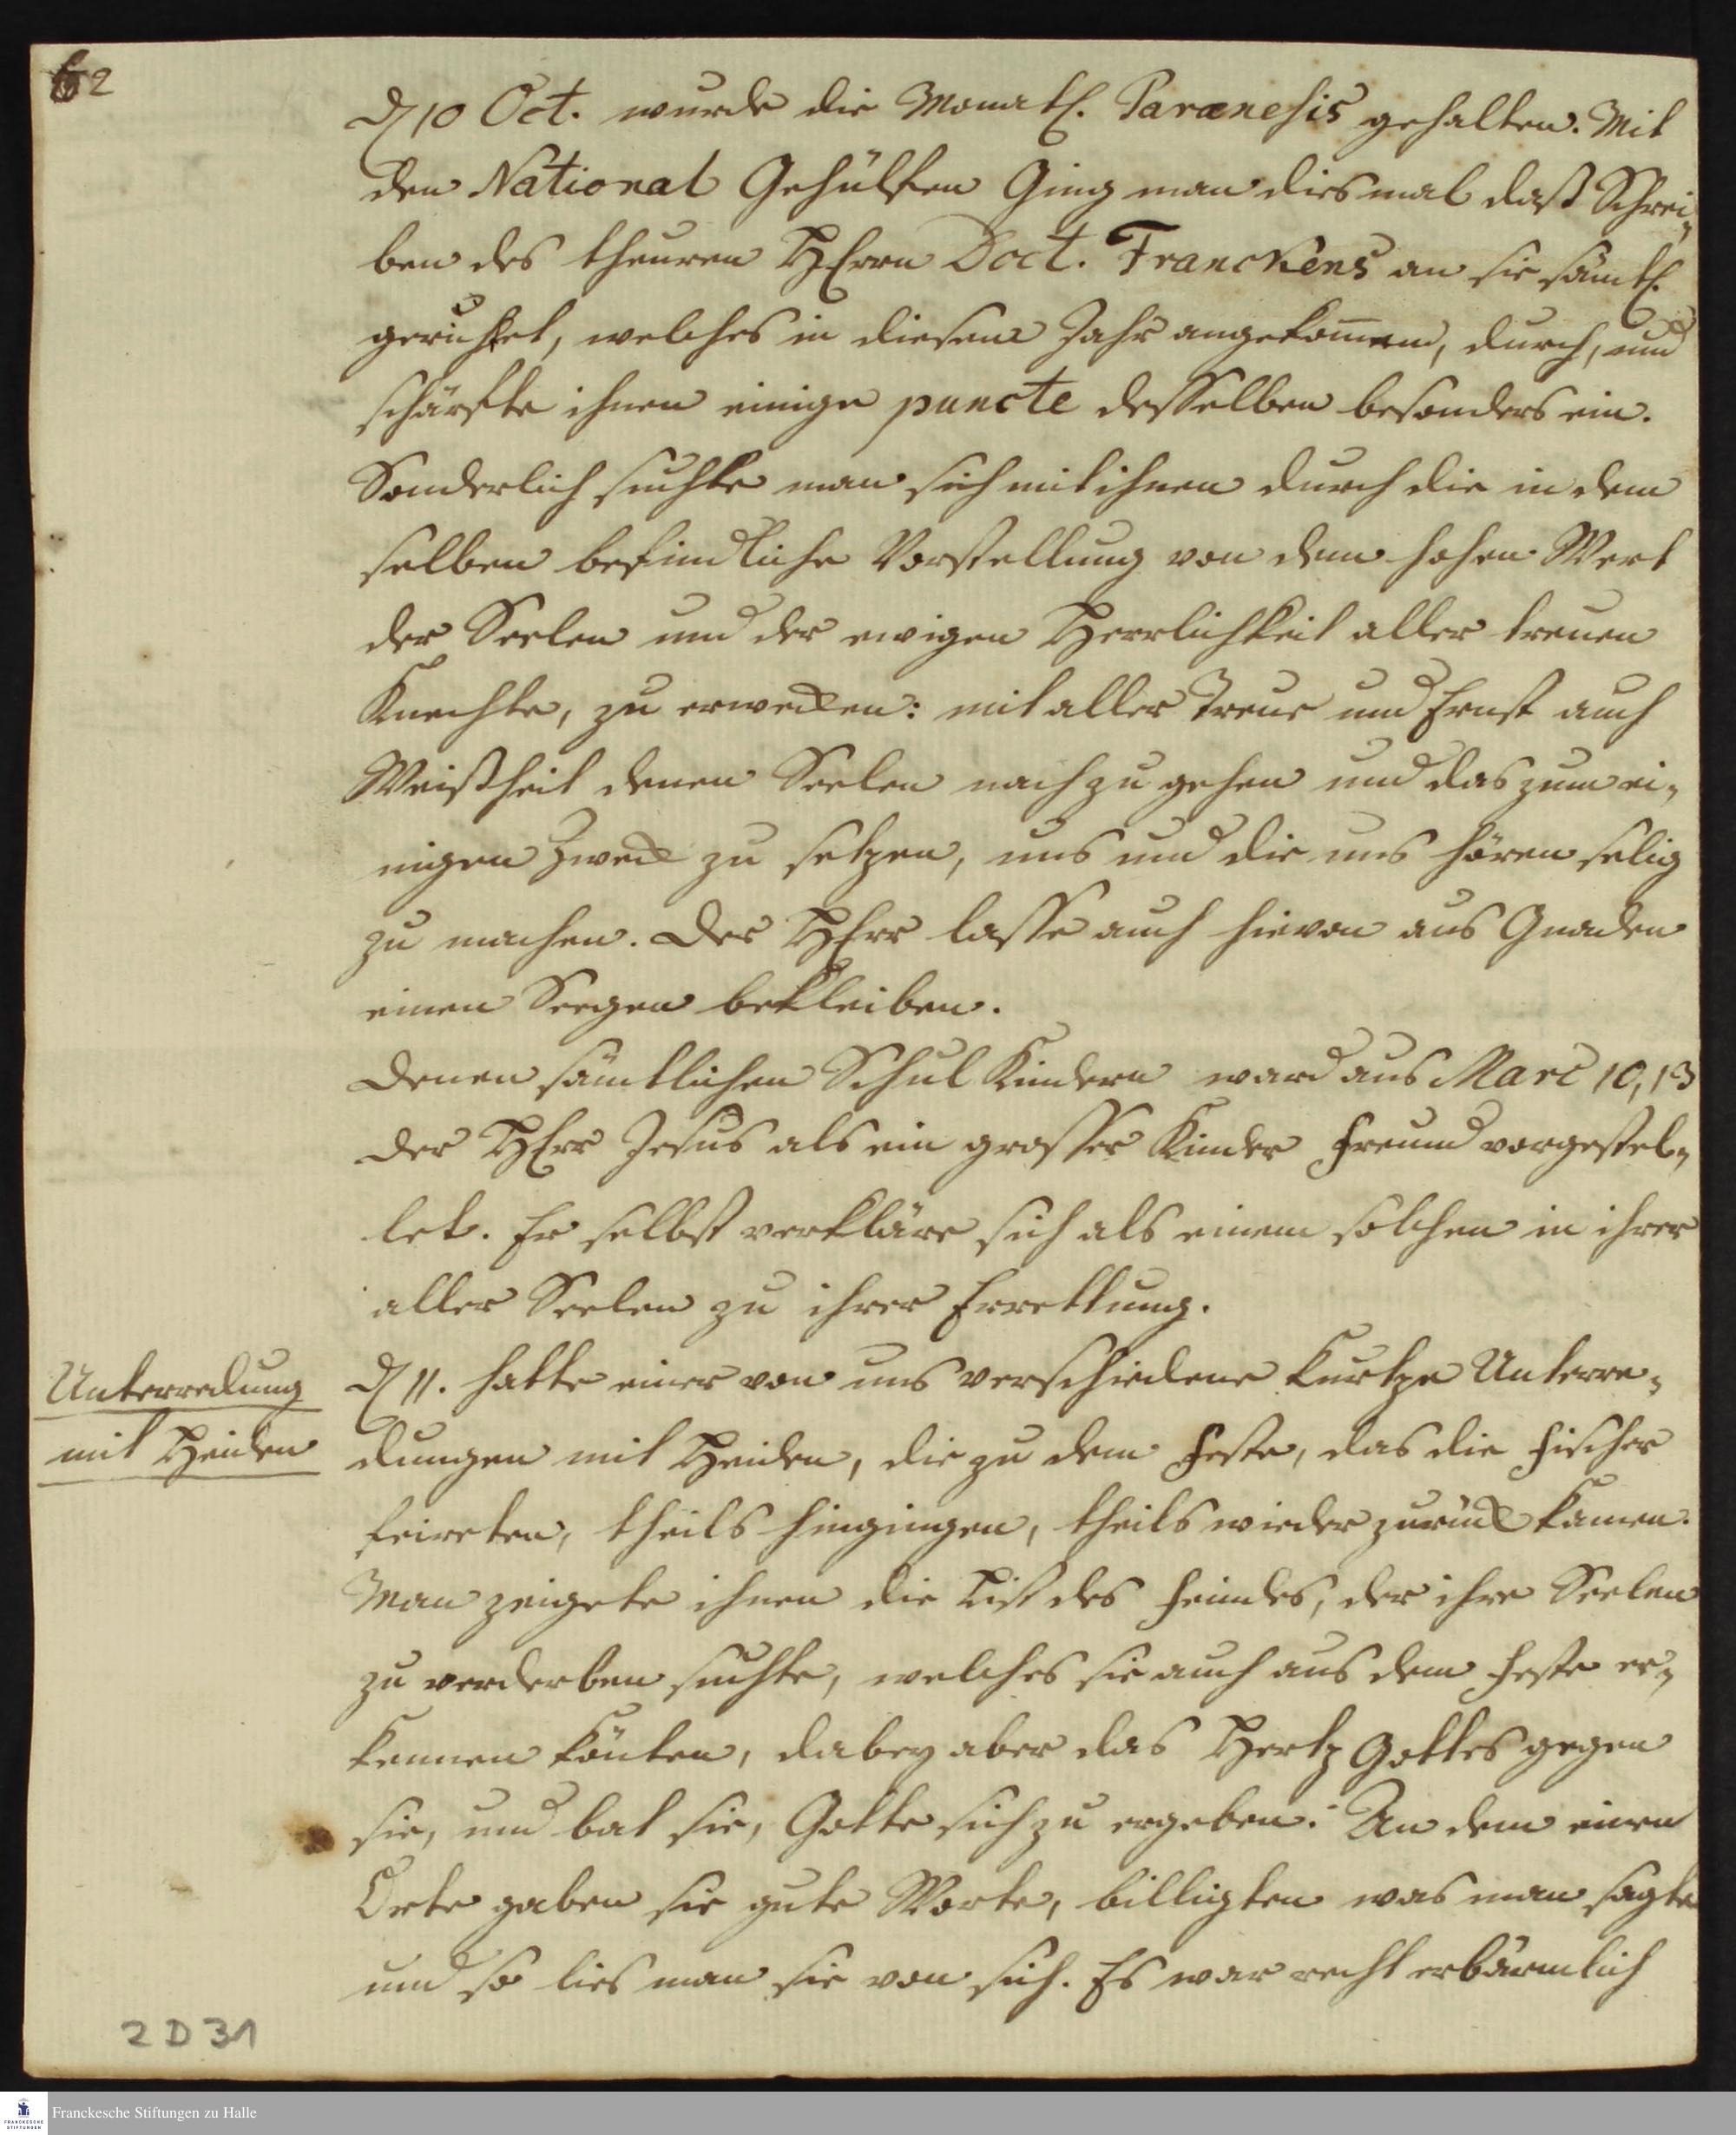 62
d 10 Oct. wurde die Monatl. Parænesis gehalten. Mit
den National Gehülfen Ging man diesmal daß Schrei-
ben des theuren HErrn Doct. Franckens an sie sämtl.
gerichtet, welches in diesem Jahr angekommen, durch, und
schärfte ihnen einige puncte desselben besonders ein.
Sonderlich suchte man sich mit ihnen durch die in dem
selben befindliche Vorstellung von dem hohen Wert
der Seelen und der ewigen Herrlichkeit aller treuen
Knechte, zu erwecken: mit aller Treue und Ernst auch
Weißheit denen Seelen nach zu gehen und das zum ei-
nigen Zweck zu setzen, uns und die uns hören selig
zu machen. Der HErr lasse auch hievon aus Gnaden
einen Seegen bekleiben.
Denen sämtlichen Schul Kindern ward aus Marc 10, 13
der HErr Jesus als ein grosser Kinder Freund vorgestel-
let. Er selbst verkläre sich als einem solchen in ihrer
aller Seelen zu ihrer Errettung.
Unterredung
mit Heiden
d 11. hatte einer von uns verschiedene Kurtze Unterre-
dungen mit Heiden, die zu dem Feste, das die Fischer
feireten, theils hingingen, theils wieder zurück kamen.
Man zeigete ihnen die List des Feindes, der ihre Seelen
zu verderben suchte, welches sie auch aus dem Feste er-
kennen könten, dabey aber das Hertz Gottes gegen
sie, und bat sie, Gotte sich zu ergeben. An dem einen
Orte gaben sie gute Worte, billigten was man sagte
und so lies man sie von sich. Es war recht erbärmlich
2 D 31
FRANCKESCHE
STIFTUNGEN
Franckesche Stiftungen zu Halle